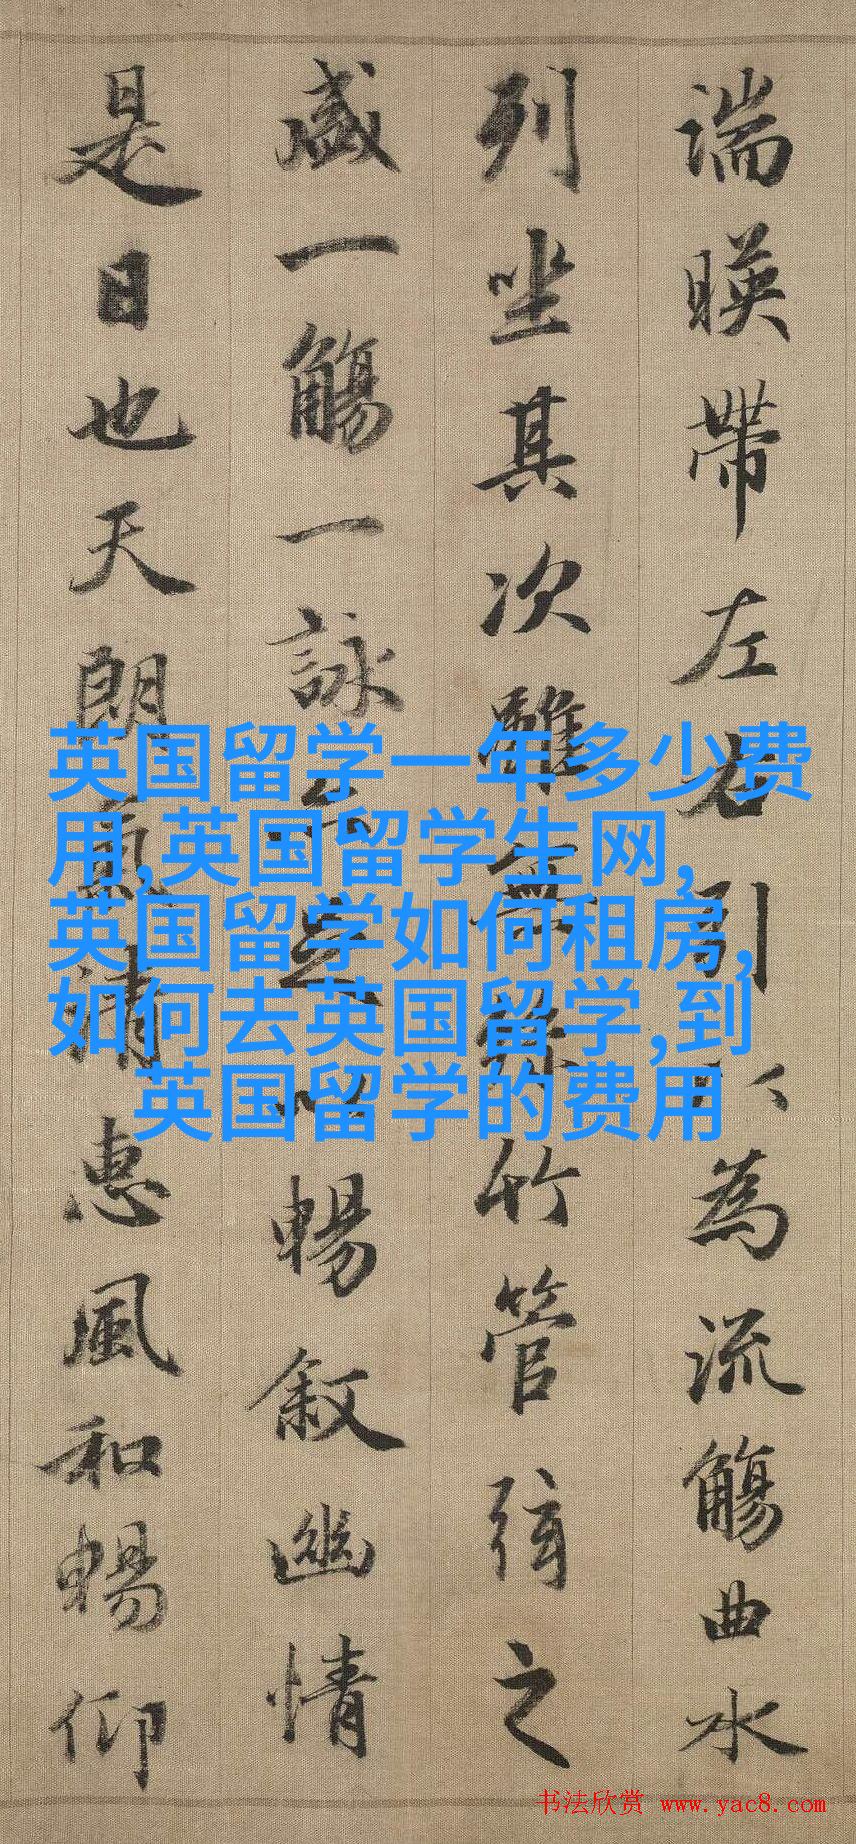 湍暎帶左右引以為流觴曲水
列坐其次雖無絲竹管弦之
盛一觴一詠亦足以暢叙幽情
是日也天朗氣清惠風和暢仰
英国留学一年多少费
用,英国留学生网,
英国留学如何租房,
如何去英国留学,到
英国留学的费用
书法欣赏 www.yac8.com